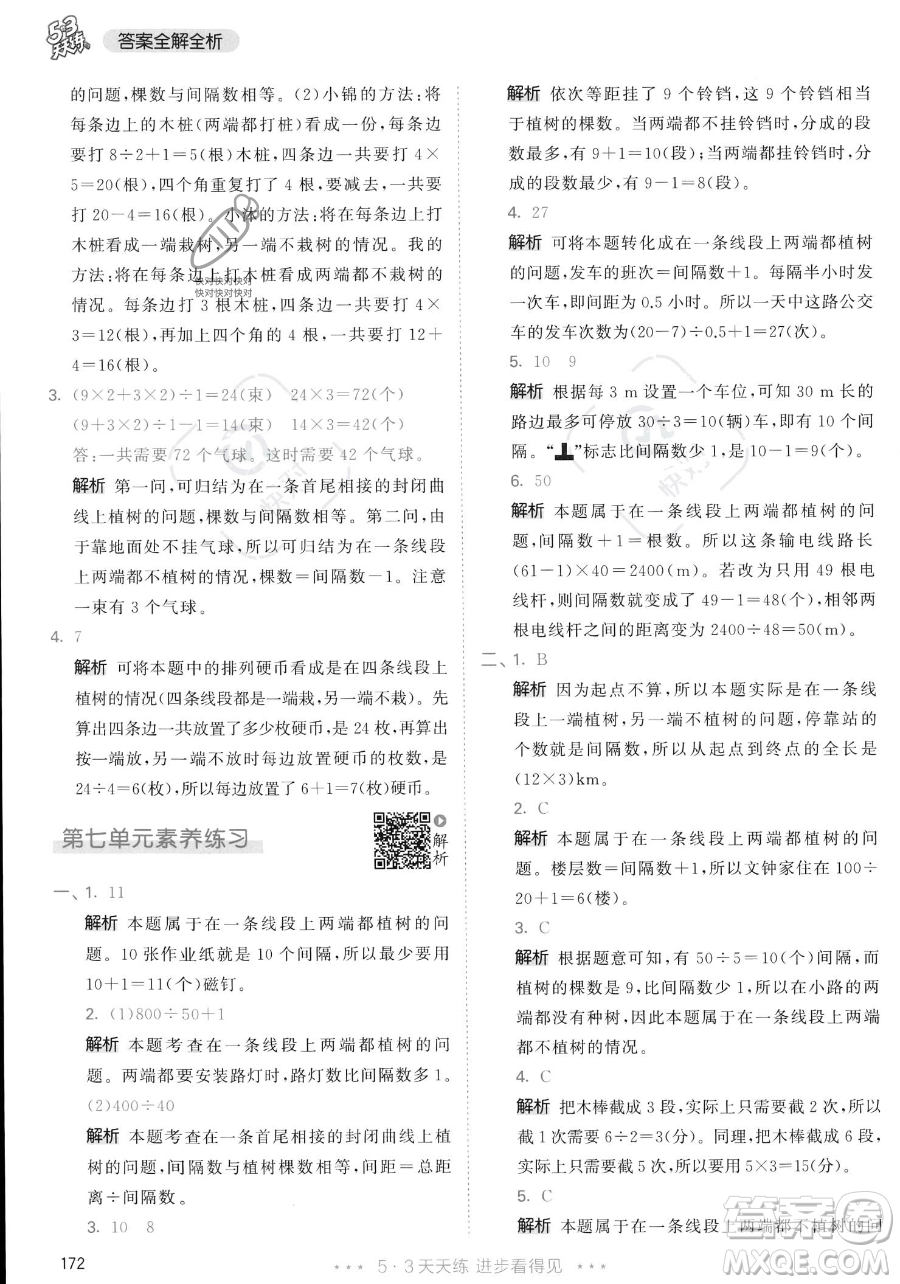 5·3
天天练
答案全解全析
的问题,棵数与间隔数相等。(2)小锦的方法:将
每条边上的木桩(两端都打桩)看成一份,每条边
要打 8÷2+1=5(根)木桩,四条边一共要打 4×
5=20(根),四个角重复打了 4 根,所以一共要打
桩 20-4=16(根)。小体的方法:将每条边上打
木桩看成一端栽树,另一端不栽树的情况。我的
方法:将每条边上打木桩看成两端都不栽树的
情况。每条边打 3 根木桩,四条边共打 3×4=
12(根),再加上四个角的 4 根,一共要打 12+
4=16(根)。
3. (9×2+3×2)÷1=24(束) 24×3=72(个)
(9+3×2)÷1-1=14(束) 14×3=42(个)
答:一共需要 72 个气球。
解析 第一问,可归结为在一条首尾相接的封闭曲
线上植树的问题,棵数与间隔数相等。第二问,由
于靠地面处不挂气球,所以可归结为在一条线段
上两端都不植树的问题,棵数=间隔数-1。注意
一束有 3 个气球。
4. 7
解析 可将本题中的排列硬币看成是在四条线段上
植树的情况(四条线段都是一端栽,一端不栽)。先
算出四条边一共放置了多少枚硬币,是 24 枚,再算出
按一端放,另一端不放时每边放置硬币的枚数,是
24÷4=6(枚),所以每边放置了 6+1=7(枚)硬币。
第七单元素养练习
解析
一、1. 11
解析 本题属于在一条线段上两端都植树的问
题。10 张作业纸就是 10 个间隔,所以一共需要
10+1=11(个)磁钉。
2. (1)800÷50+1
解析 本题考查在一条线段上两端都植树的问
题。两端都要安装路灯时,路灯数比间隔数多 1。
(2)400÷40
解析 本题考查在一条首尾相接的封闭曲线上植
树的问题,间隔数与植树棵数相等,间距=总距
离÷间隔数。
3. 10 8
解析 依次等距挂了 9 个铃铛,这 9 个铃铛相当
于植树的棵数。当两端都不挂铃铛时,分成的段
数最多,有 9+1=10(段);当两端都挂铃铛时,
分成的段数最少,有 9-1=8(段)。
4. 27
解析 可将本题转化成在一条线段上两端都植树
的问题,发车的班次=间隔数+1。每隔半小时发
一次车,即间距为 0.5 小时。所以一天中这路公交
车的发车次数为(20-7)÷0.5+1=27(次)。
5. 10 9
解析 根据每 3 m 设置一个车位,可知 30 m 长的
路边最多可停放 30÷3=10(辆)车,即有 10 个间
隔。“┻”标志比间隔数少 1,是 10-1=9(个)。
6. 50
解析 本题属于在一条线段上两端都植树的问
题,间隔数+1=根数。所以这条输电线路长
(61-1)×40=2400(m)。若改为只用 49 根电
线杆,则间隔数就变成了 49-1=48(个),相邻两
根电线杆之间的距离变为 2400÷48=50(m)。
二、1. B
解析 因为起点不算,所以本题实际是在一条线
段上一端植树,另一端不植树的问题,停靠站的
个数就是间隔数,所以从起点到终点的全长是
(12×3)km。
2. C
解析 本题属于在一条线段上两端都植树的问
题。楼层数=间隔数+1,所以文钟家住在 100÷
20+1=6(楼)。
3. C
解析 根据题意可知,有 50÷5=10(个)间隔,而
植树的棵数是 9,比间隔数少 1,所以在小路的两
端都没有种树,因此本题属于在一条线段上两端
都不植树的情况。
4. C
解析 把木棒截成 3 段,实际上只需要截 2 次,所以
截 1 次需要 6÷2=3(分)。同理,把木棒截成 6 段,
实际上只需要截 5 次,所以要用 5×3=15(分)。
5. C
解析 本题属于在一条线段上两端都不植树的问
172
5·3天天练 进步看得见
快对快对快对
快对快对快对
快对
快对
答案圈
MXQE.COM